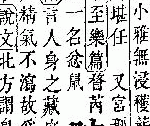 小雅無浸穫
堪任 又宮
至樂篇瞀芮
一名忩鼠
言人身之藏
精氣不瀉故
說文北方謂